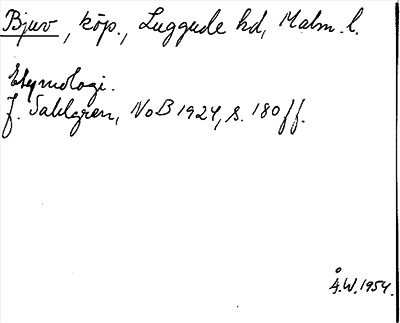 Bjuv, köp., Luggude hd, Malm. l.
Etymologi.
J. Sahlgren, NoB 1924, s. 180 ff.
Å.W. 1954.